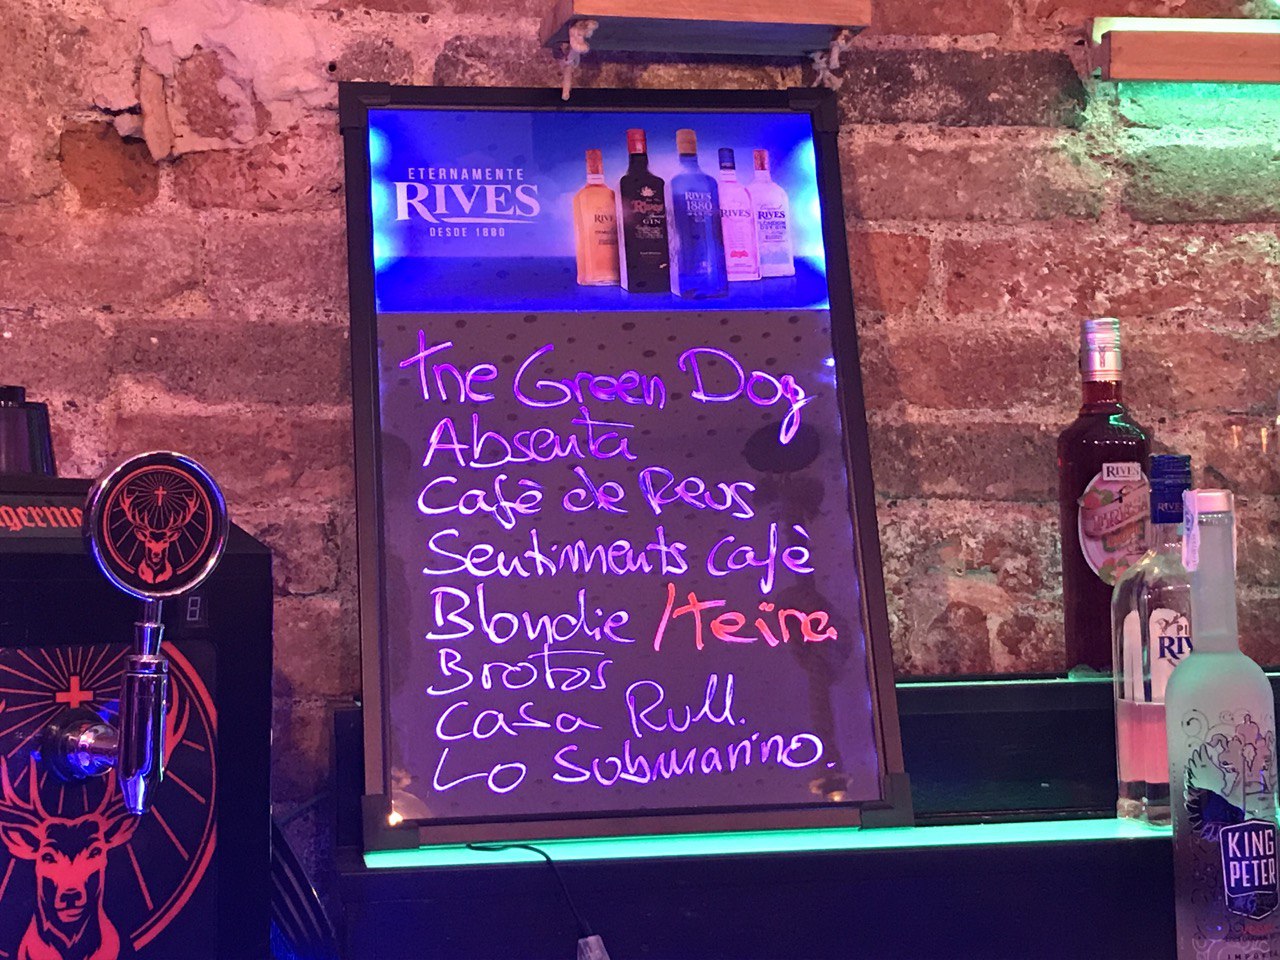 ETERNAMENTE
RIVES
DESDE 1880
RIVES
1880
RIVES
RIVES
The Green Dog
Absenta
Cafè de Reus
Sentiments cafè
Blondie /teïna
Brotos
Casa Rull.
Lo Submarino.
RIVES
KING
PETER